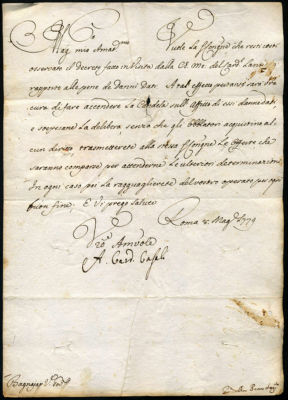 Mag. mio Amat.mo Vuole la S. Cong.ne che resti costì
osservato il decreto fatto in Visita dalla Ch. Me. del Card. Lanti
rapporto alle pene de Danni Dati. A tal effetto pertanto sarà sua
cura di fare accendere la Candela sull'Affitto di essi danni dati,
e sospesane la delibera, senza che gli Obblatori acquistino al-
cun diritto trasmetterete alla stessa S. Cong.ne le offerte che
saranno comparse per attenderne le ulteriori determinazioni.
In ogni caso poi la ragguaglierete del vostro operato per ogni
buon fine. E Vi prego salute
Roma 8. Mag.o 1779
Amvole
A. Card. Casali
Bagnaja